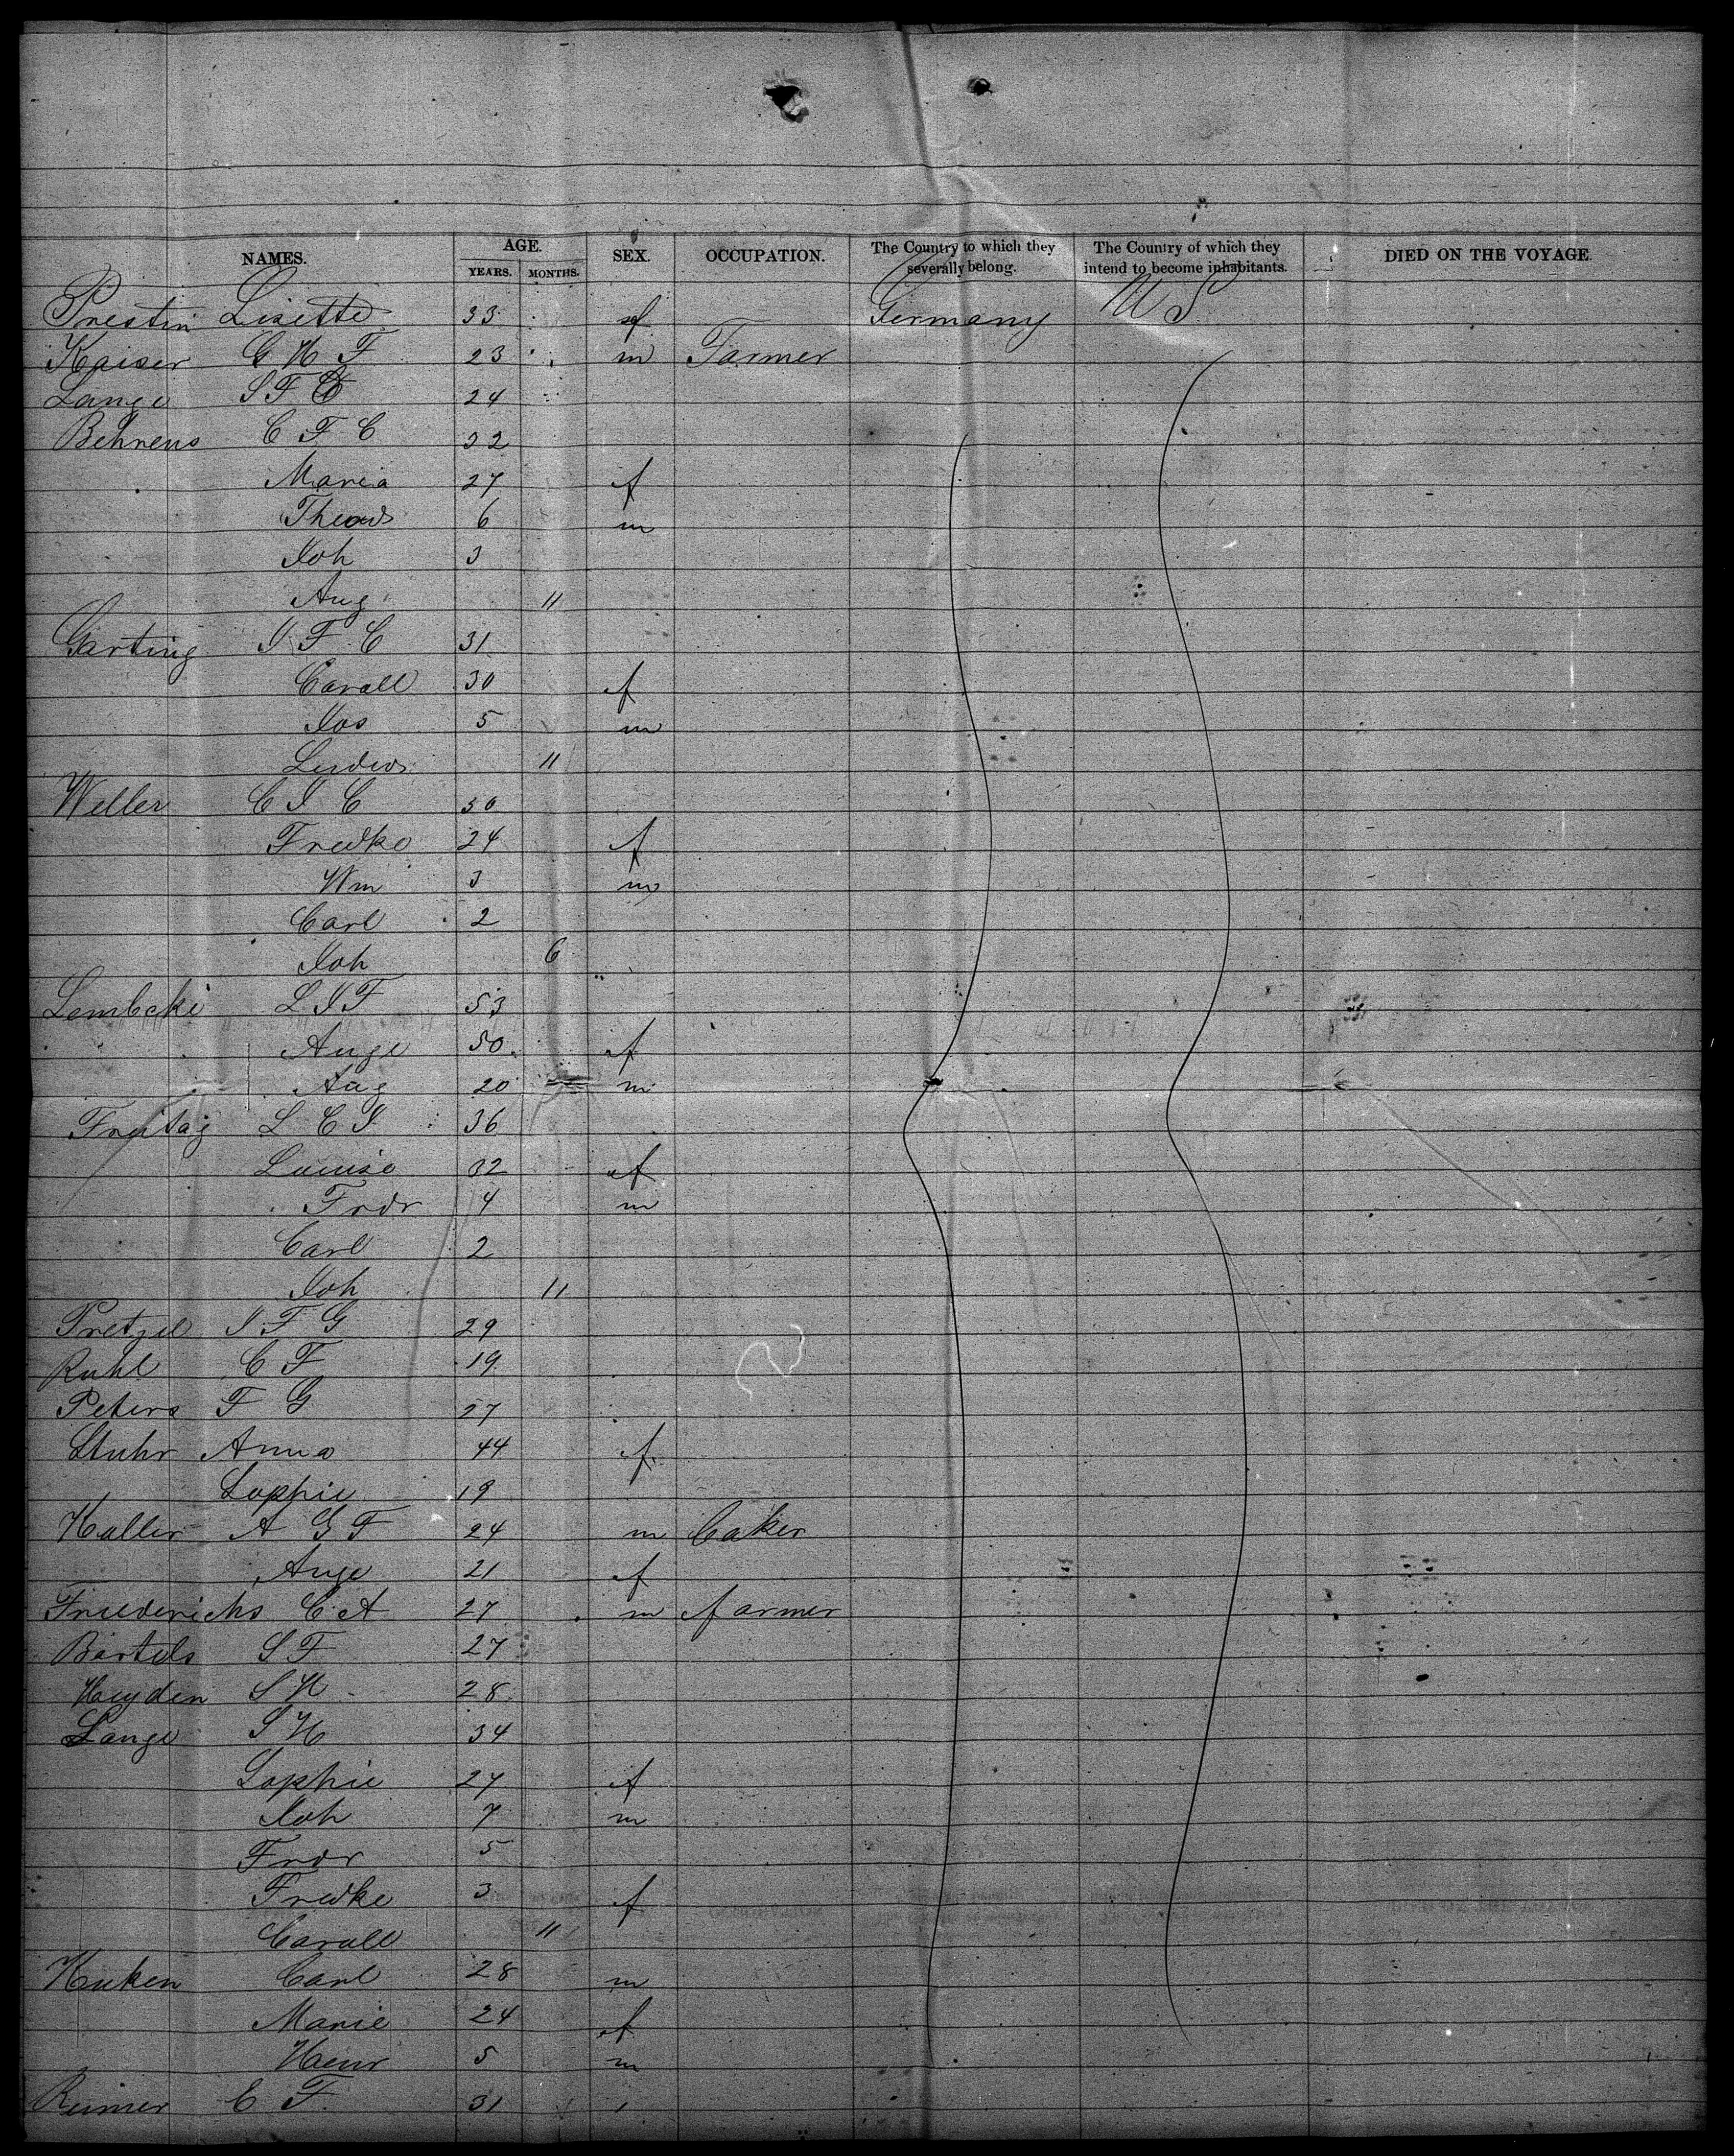 NAMES. AGE. YEARS. MONTHS. SEX. OCCUPATION. The Country to which they severally belong. The Country of which they intend to become inhabitants. DIED ON THE VOYAGE.
Prestin Lisette 33 f Germany U S
Kaiser G H F 23 m Farmer
Lange S F 24
Behrens C F C 32
Maria 27 f
Theod 6 m
Joh 3
Aug 11
Garting J F C 31
Caroll 30 f
Jos 5 m
Ludw 11
Weller C J C 30
Fredke 24 f
Wm 3 m
Carl 2
Joh 6
Lembcke L J F 53
Auge 50 f
Aug 20 m
Freitag L C J 36
Louise 32 f
Frdr 4 m
Carl 2
Joh 11
Pretzel J F G 29
Ruhl C F 19
Peters F G 27
Stuhr Anna 44 f
Sophie 19
Haller A G F 24 m baker
Auge 21 f
Friederichs C A 27 m farmer
Bartels S F 27
Heyden S H 28
Lange S H 34
Sophie 27 f
Joh 7 m
Frdr 5
Fredke 3 f
Caroll 11
Huken Carl 28 m
Marie 24 f
Henr 5 m
Reimer C F 31